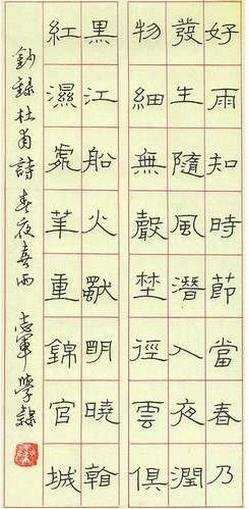 好雨知時節當春乃
發生隨風潛入夜潤
物細無聲埜徑雲俱
黑江船火獨明曉看
紅濕處華重錦官城
鈔錄杜甫詩春夜喜雨 志軍學隸